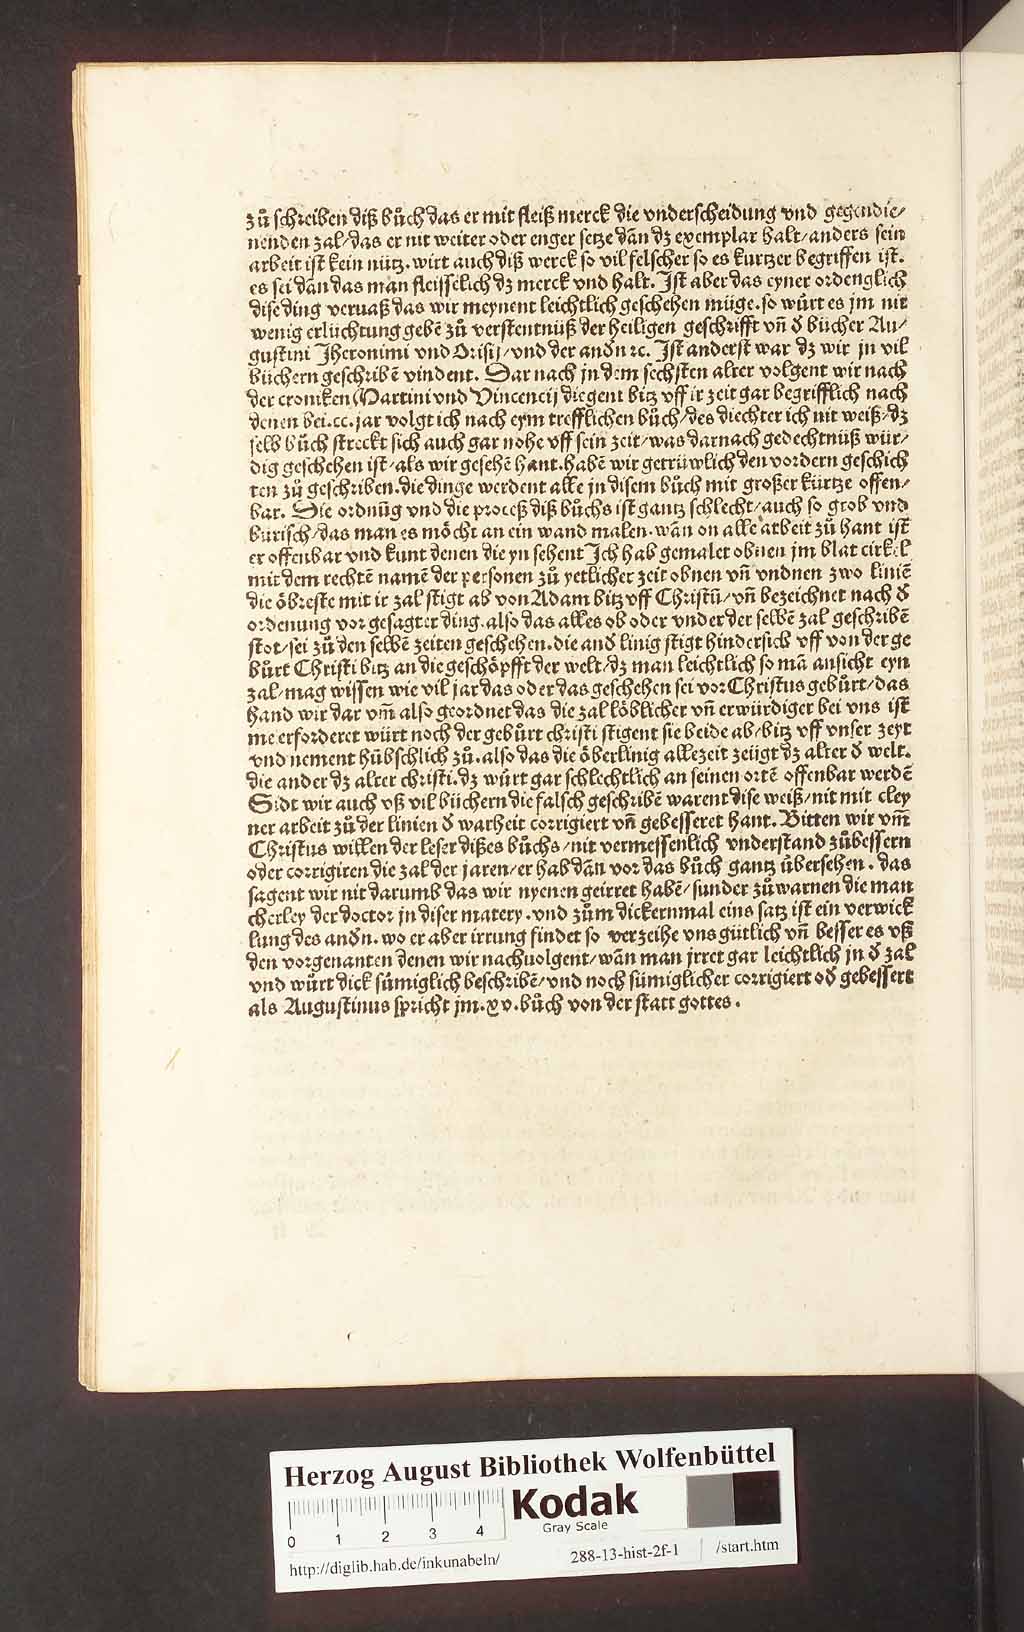 zů schreiben diß bůch das er mit fleiß merck die vnderscheidung vnd gegendie/
nenden zal/das er nit weiter oder enger setze dañ dz exemplar halt/anders sein
arbeit ist kein nütz. wirt auch diß werck so vil felscher so es kurtzer begriffen ist.
es sei dañ das man fleisselich dz merck vnd halt. Ist aber das eyner ordenglich
dise ding veruaß das wir meynent leichtlich geschehen müge. so wůrt es jm nit
wenig erlüchtung gebē zů verstentnüß der heiligen geschrifft vñ d̕ bücher Au/
gustini Jheronimi vnd Orisij/vnd der andn̄ ⁊c. Ist anderst war dz wir jn vil
büchern geschribē vindent. Dar nach jn dem sechsten alter volgent wir nach
der croniken Martini vnd Vincencij die gent bitz vff ir zeit gar begrifflich nach
denen bei .cc. jar volgt ich nach eym trefflichen bůch/des diechter ich nit weiß/dz
selb bůch streckt sich auch gar nohe vff sein zeit/was darnach gedechtnüß wür/
dig geschehen ist/als wir gesehē hant. habē wir getrüwlich den vordern geschich
ten zů geschriben. die dinge werdent alle jn disem bůch mit großer kürtze offen/
bar. Die ordnūg vnd die proceß diß bůchs ist gantz schlecht/auch so grob vnd
bürisch/das man es möcht an ein wand malen. wañ on alle arbeit zů hant ist
er offenbar vnd kunt denen die yn sehent Ich hab gemalet obnen jm blat cirkel
mit dem rechtē namē der personen zů yetlicher zeit obnen vñ vndnen zwo liniē
die öbreste mit ir zal stigt ab von Adam bitz vff Christū/vñ bezeichnet nach d̕
ordenung vor gesagter ding. also das alles ob oder vnder der selbē zal geschribē
stot/sei zů den selbē zeiten geschehen. die and̕ linig stigt hindersich vff von der ge
bůrt Christi bitz an die geschöpfft der welt/dz man leichtlich so mā ansicht eyn
zal/mag wissen wie vil jar das oder das geschehen sei vor Christus gebůrt/das
hand wir dar vm̄ also geordnet das die zal löblicher vñ erwürdiger bei vns ist
me erforderet würt noch der gebůrt christi stigent sie beide ab/bitz vff vnser zeyt
vnd nement hübschlich zů. also das die öberlinig allezeit zeiigt dz alter d̕ welt.
die ander dz alter christi. dz wůrt gar schlechtlich an seinen ortē offenbar werdē
Sidt wir auch vß vil büchern die falsch geschribē warent dise weiß/nit mit cley
ner arbeit zů der linien d̕ warheit corrigiert vñ gebesseret hant. Bitten wir vm̄
Christus willen der leser dißes bůchs/nit vermessenlich vnderstand zůbessern
oder corrigiren die zal der jaren/er hab dañ vor das bůch gantz übersehen. das
sagent wir nit darumb das wir nyenen geirret habē/sunder zůwarnen die man
cherley der doctor jn diser matery. vnd zům dickernmal eins satz ist ein verwick
lung des andn̄. wo er aber irrung findet so verzeihe vns gütlich vñ besser es vß
den vorgenanten denen wir nachuolgent/wañ man jrret gar leichtlich jn d̕ zal
vnd wůrt dick sümiglich beschribē/vnd noch sümiglicher corrigiert od̕ gebessert
als Augustinus spricht jm .xv. bůch von der statt gottes.
Herzog August Bibliothek Wolfenbüttel
Kodak
Gray Scale
0 1 2 3 4
http://diglib.hab.de/inkunabeln/ 288-13-hist-2f-1 /start.htm